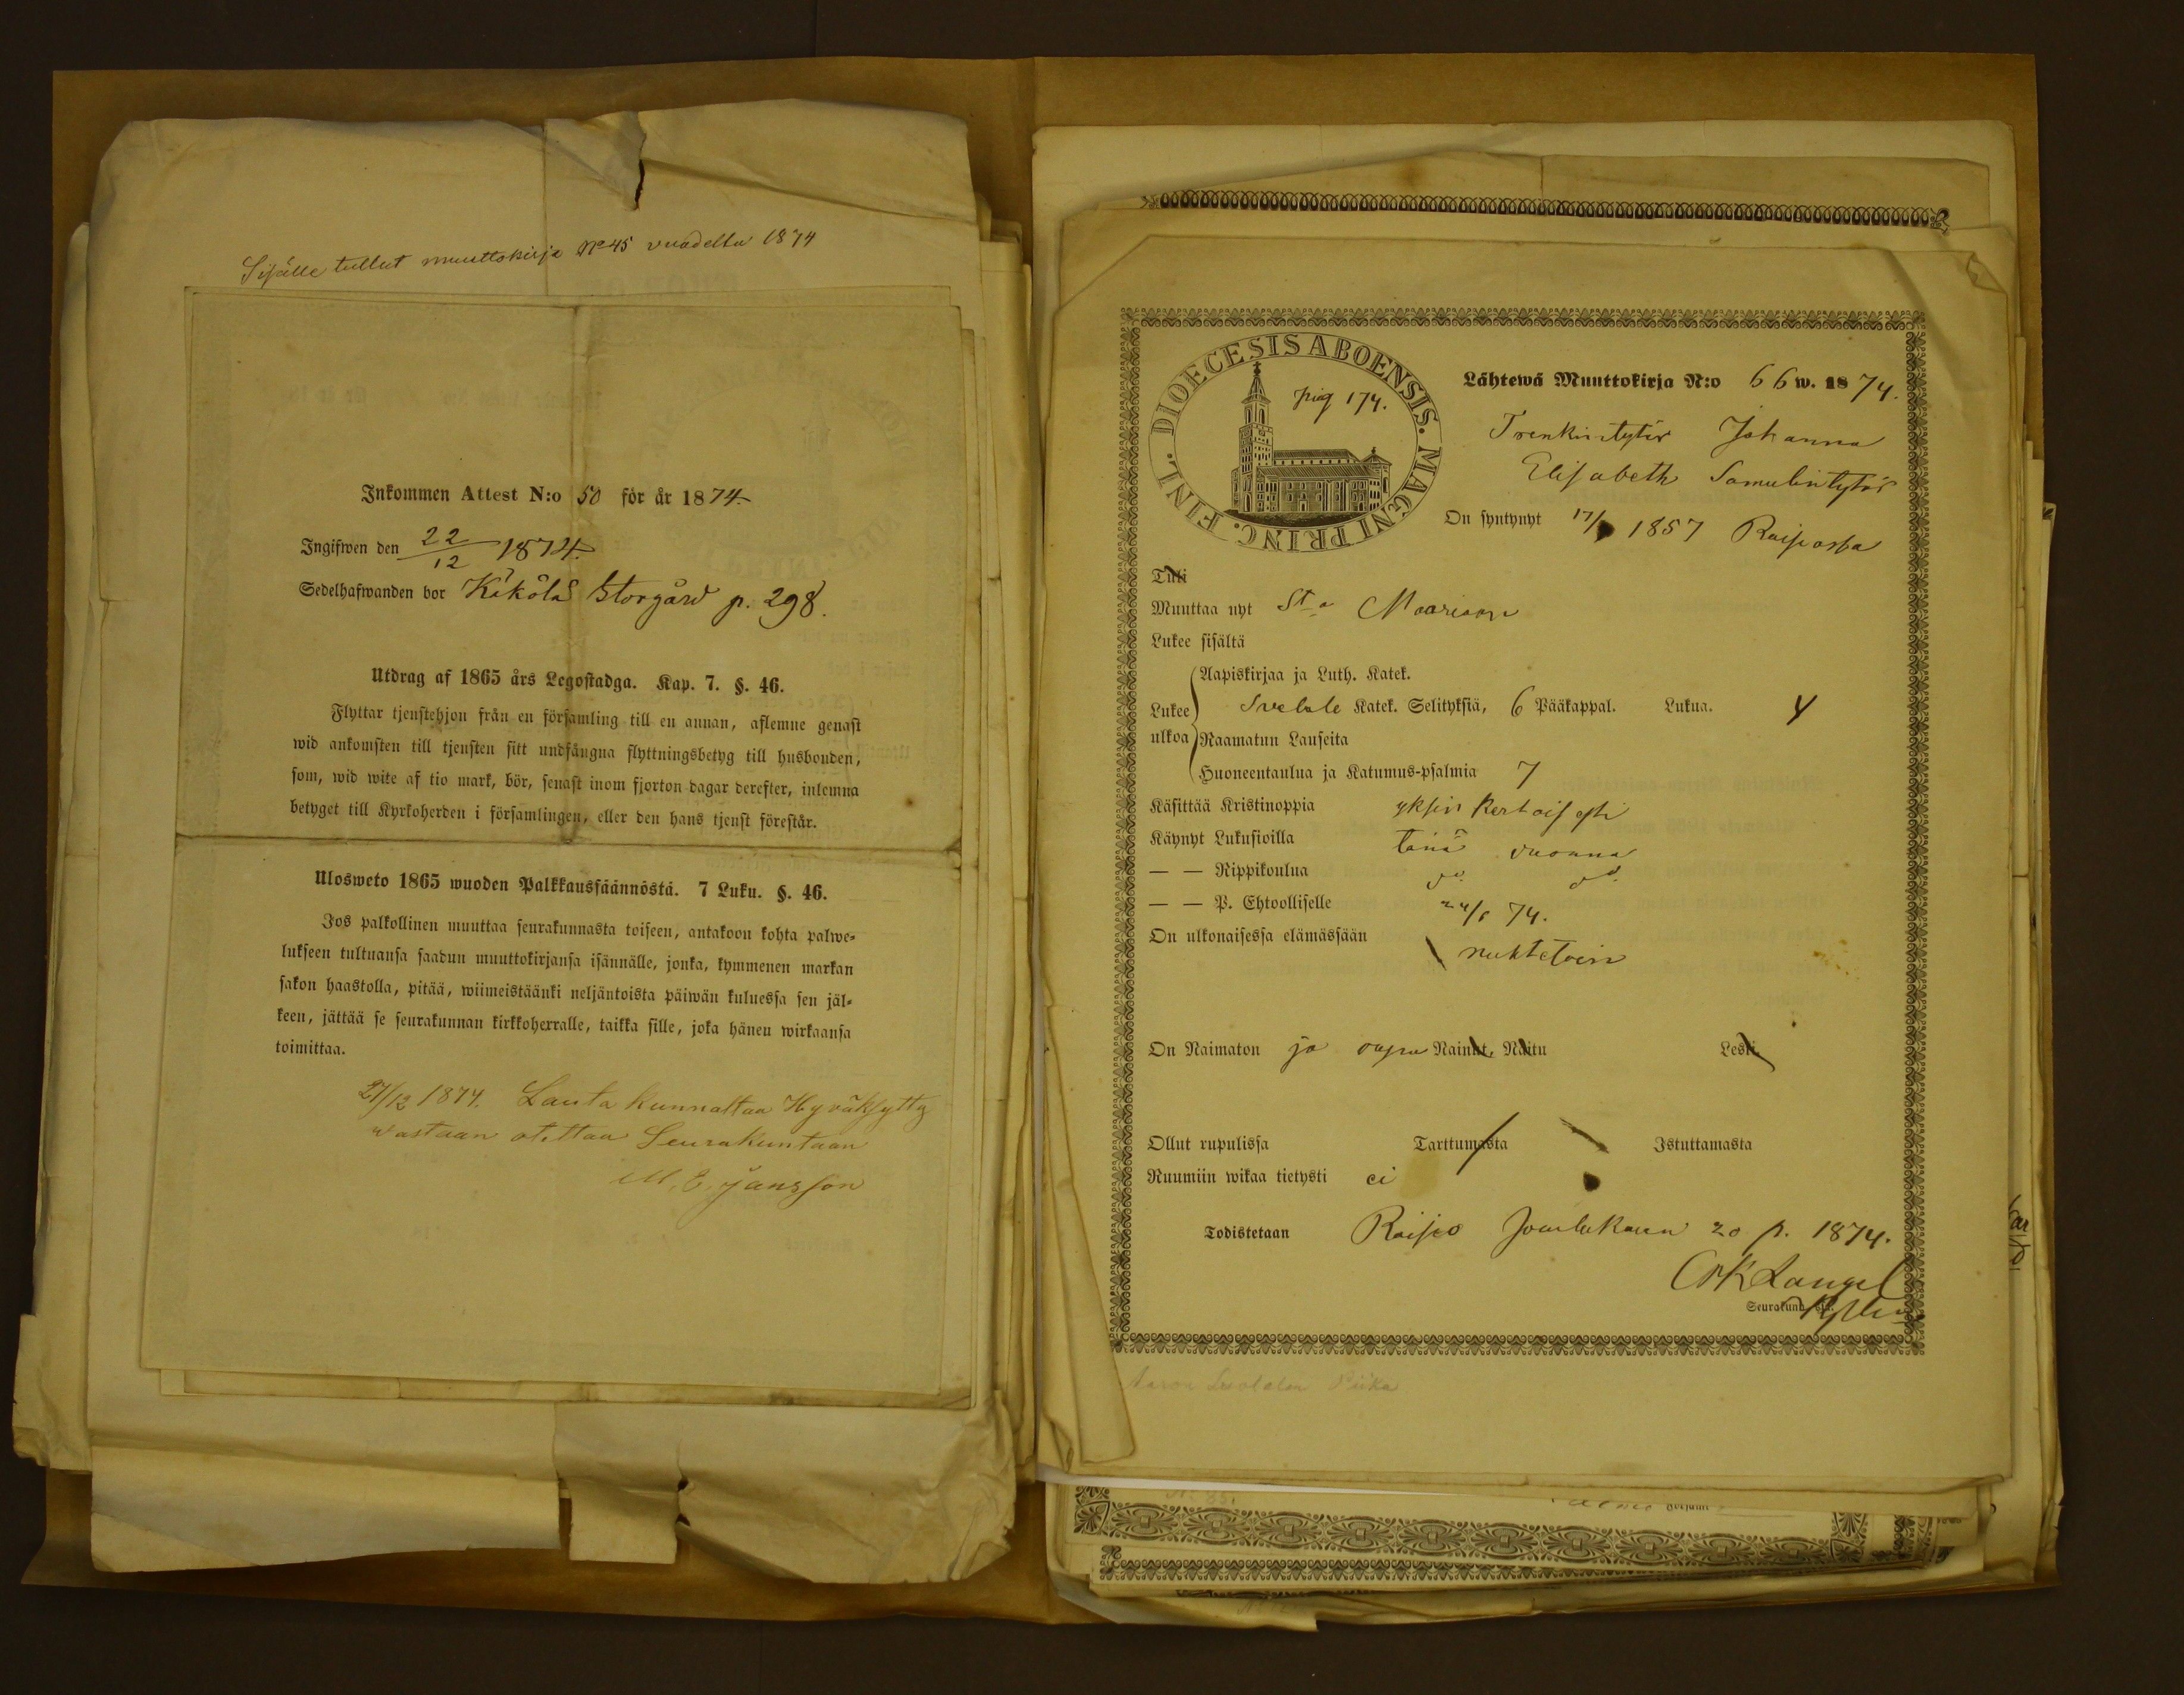 Sisälle tullut muuttokirja No 45 vuodelta 1874
Inkommen Attest N:o 50 för år 1874.
Ingifwen den 22/12 1874.
Sedelhafwanden bor Kåkola Storgård p. 298.
Utdrag af 1865 års Legostadga. Kap. 7. §. 46.
Flyttar tjenstehjon från en församling till en annan, aflemne genast
wid ankomsten till tjensten sitt undfångna flyttningsbetyg till husbonden,
som, wid wite af tio mark, bör, senast inom fjorton dagar derefter, inlemna
betyget till Kyrkoherden i församlingen, eller den hans tjenst förestår.
Ulosweto 1865 wuoden Palkkaussäännöstä. 7 Luku. §. 46.
Jos palkollinen muuttaa seurakunnasta toiseen, antakoon kohta palwe-
lukseen tultuansa saadun muuttokirjansa isännälle, jonka, kymmenen markan
sakon haastolla, pitää, wiimeistäänki neljäntoista päiwän kuluessa sen jäl-
keen, jättää se seurakunnan kirkkoherralle, taikka sille, joka hänen wirkaansa
toimittaa.
27/12 1874. Lautakunnaltaa Hyväksytty
wastaan otettaa Seurakuntaan
M. E. Jansson
DIOECESIS ABOENSIS. MAGNI PRINC. FINL.
pag 174.
Lähtewä Muuttokirja N:o 66 w. 1874.
Trenkintytär Johanna
Elisabeth Samulintytär
On syntynyt 17/ 1857 Raisiossa
Tuli
Muuttaa nyt St a Maariaan
Lukee sisältä
Aapiskirjaa ja Luth. Katek.
Lukee ulkoa Svebile Katek. Selityksiä, 6 Pääkappal. Lukua. 4
Raamatun Lauseita
Huoneentaulua ja Katumus-psalmia 7
Käsittää Kristinoppia yksin kertaisesti
Käynyt Lukusioilla tänä vuonna
— — Rippikoulua do do
— — P. Ehtoolliselle 24/ 74.
On ulkonaisessa elämässään nuhtetoin
On Naimaton ja vapa Nainut, Naitu Leski.
Ollut rupulissa Tarttumasta Istuttamasta
Ruumiin wikaa tietysti ei
Todistetaan Raisio Joulukuun 20 p. 1874.
Seurakunn
Piika